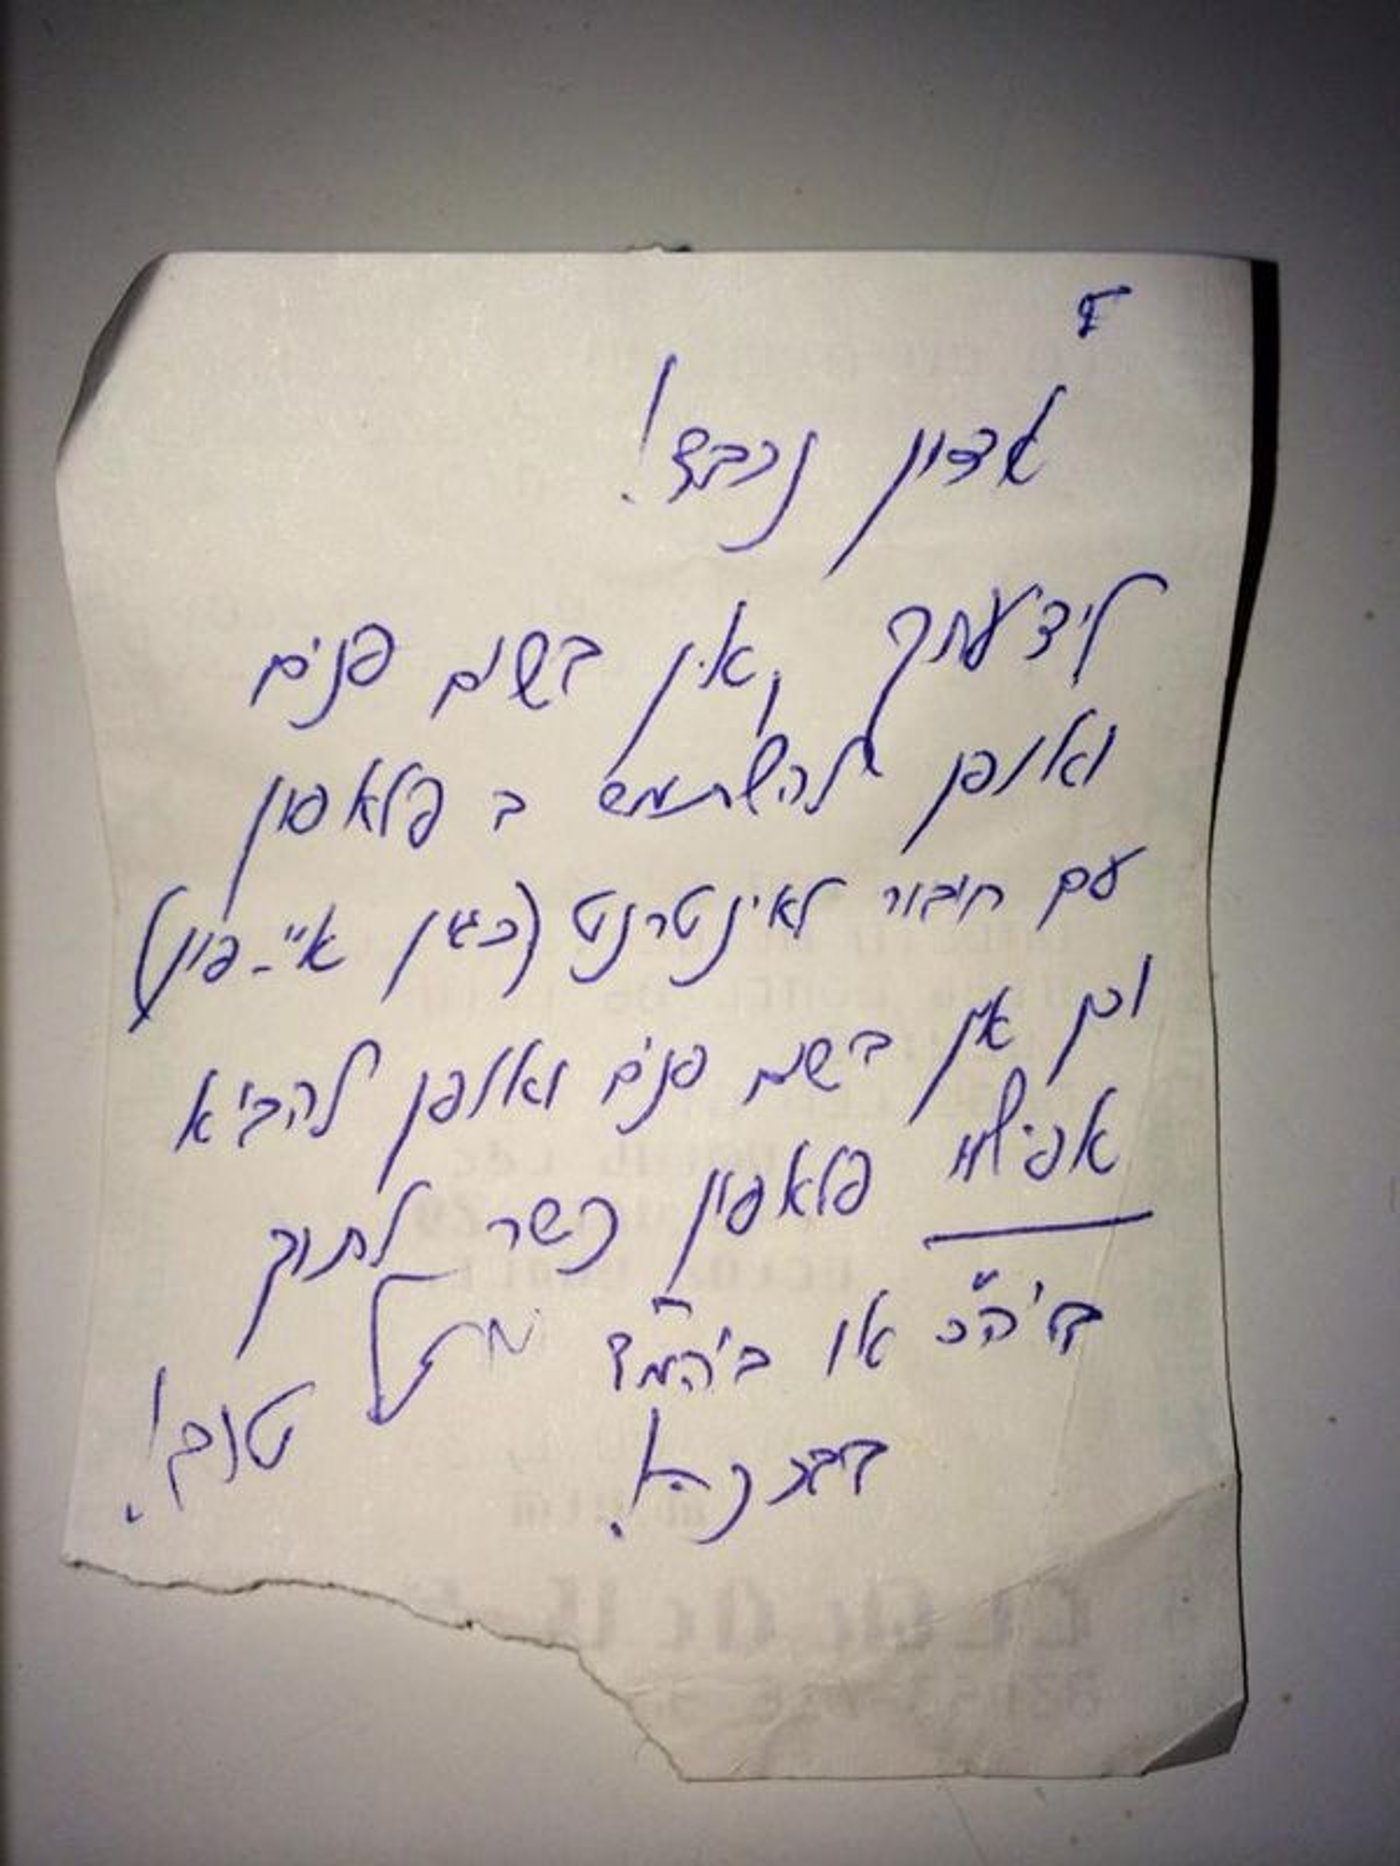 אדון נכבד!
לידיעתך, אין בשום פנים
ואופן להשתמש ב פלאפון
עם חיבור לאינטרנט (כגון אי-פון)
וכן אין בשום פנים ואופן להביא
אפילו פלאפון כשר לתוך
ביהכ"נ או ביהמ"ד
בברכה! טוב!